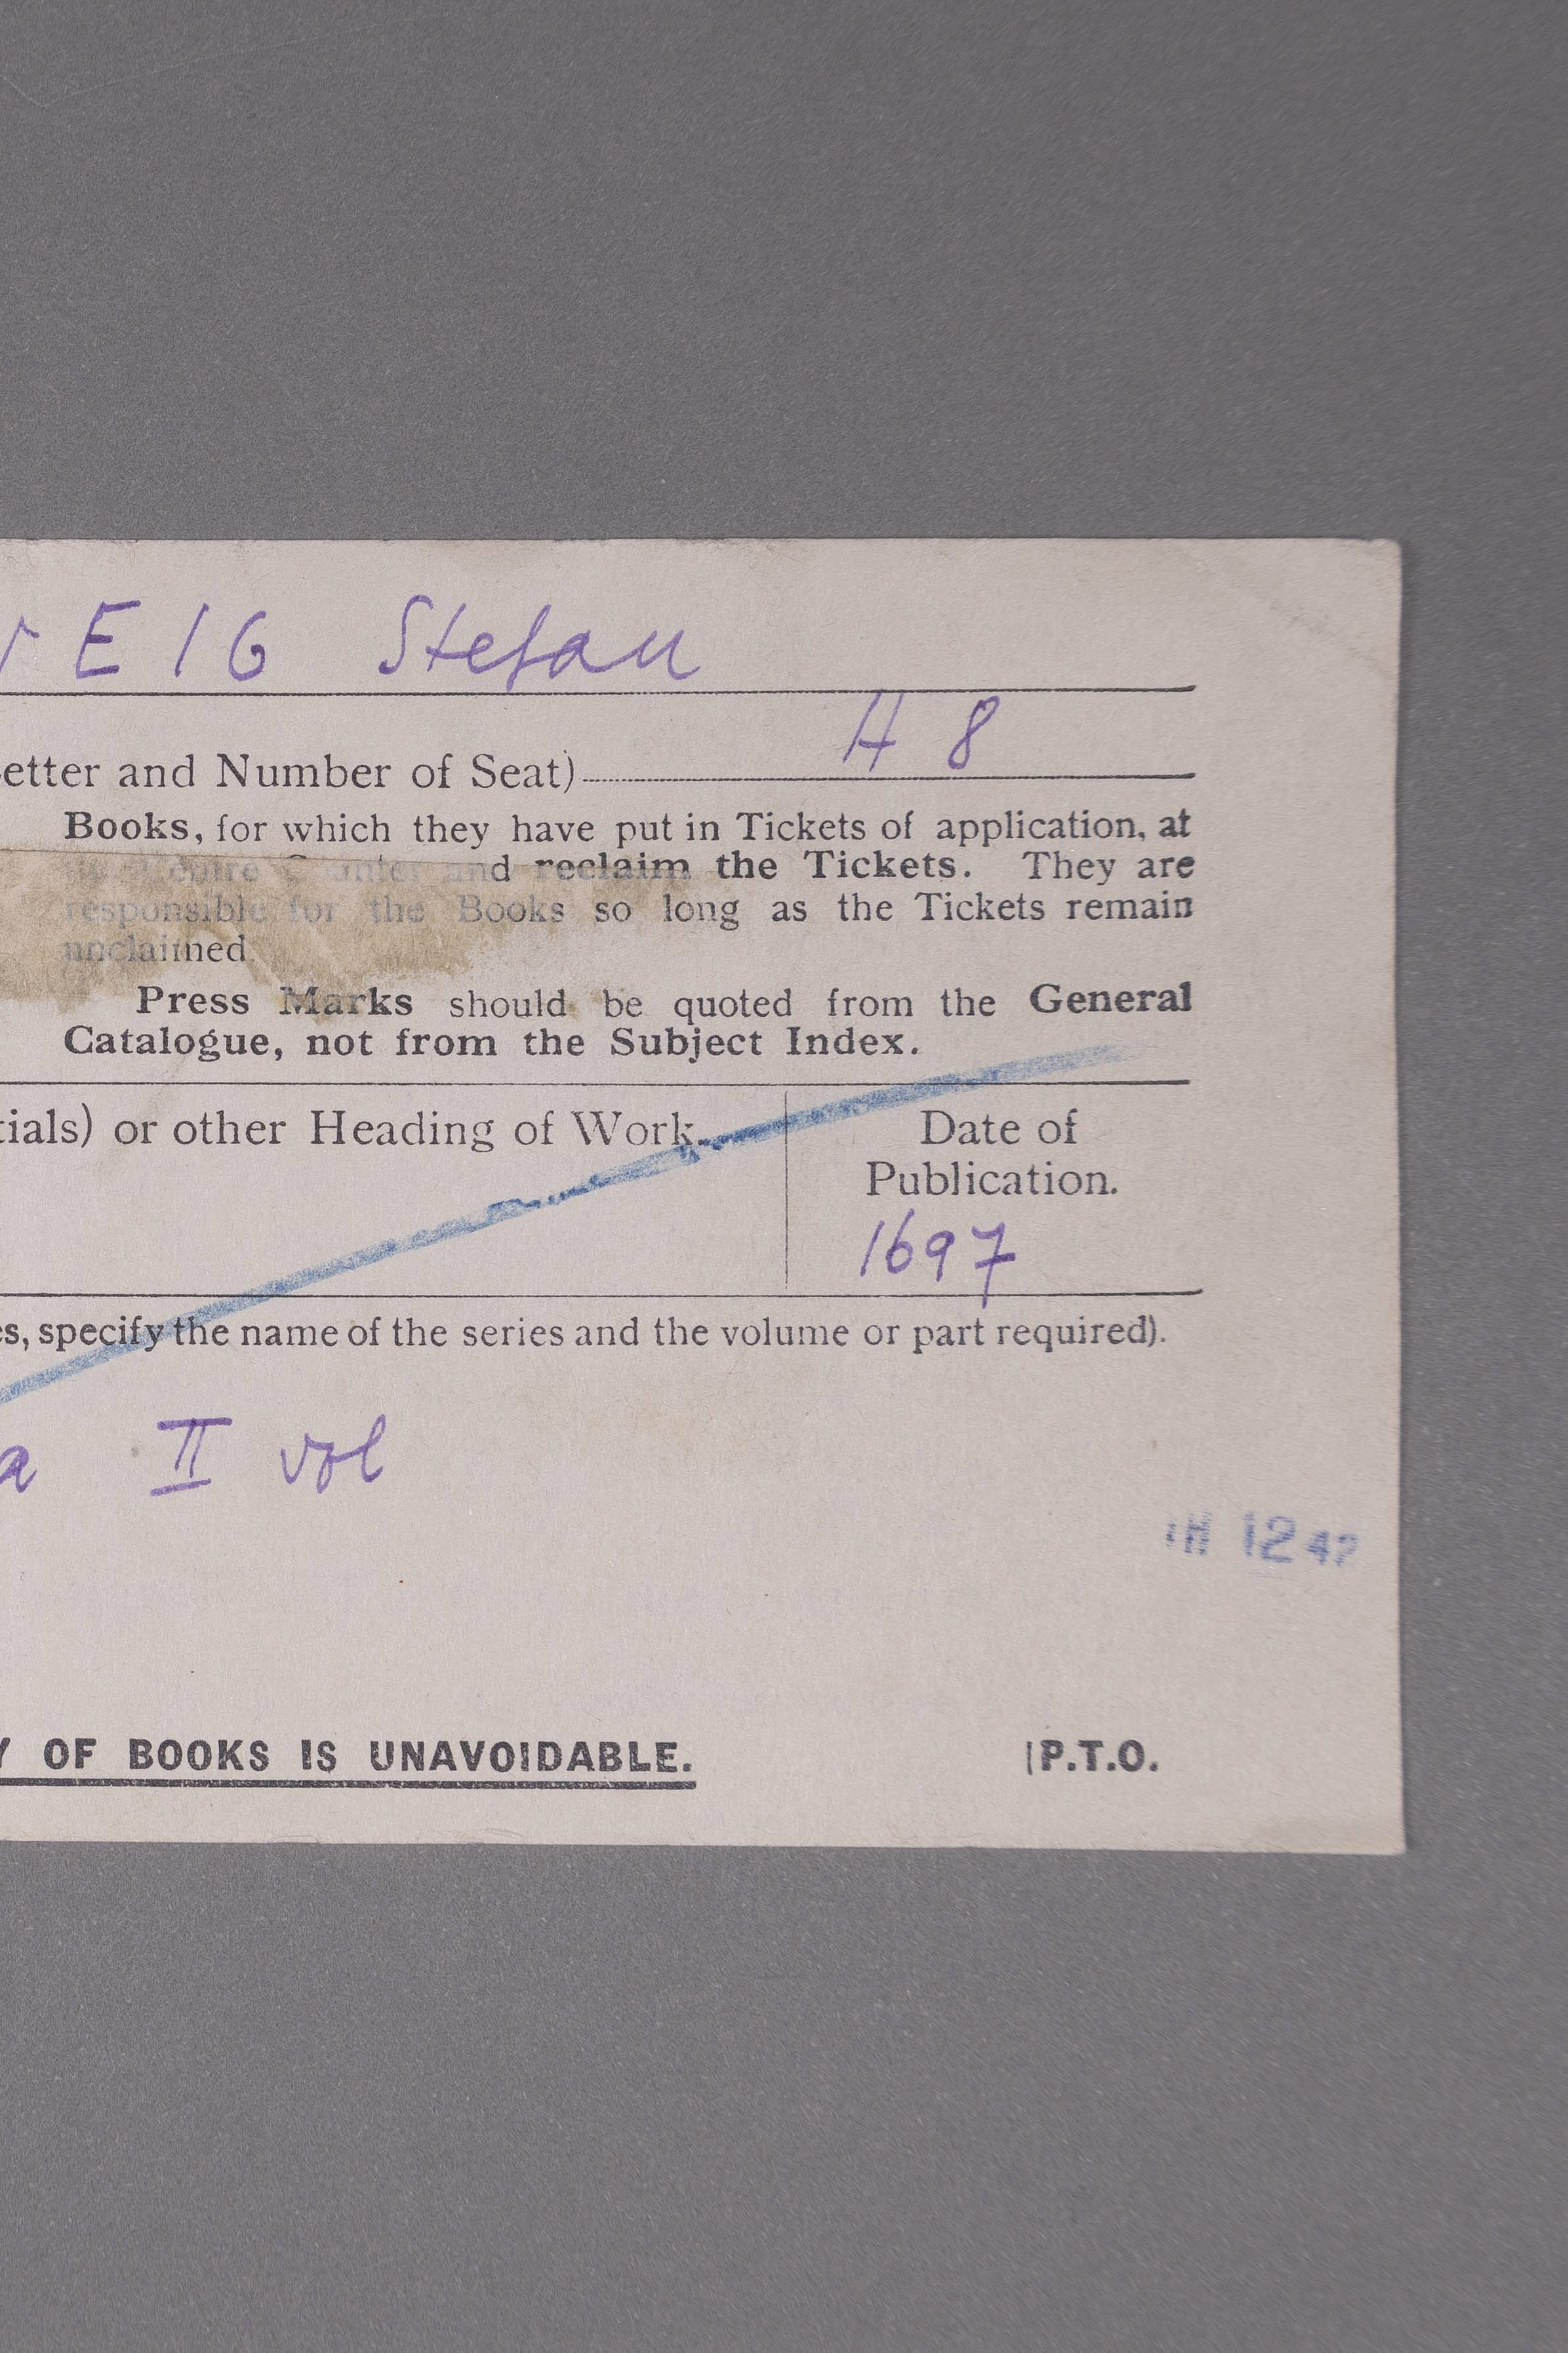 EIG Stefan
etter and Number of Seat) H 8
Books, for which they have put in Tickets of application, at
Centre Counter and reclaim the Tickets. They are
responsible for the Books so long as the Tickets remain
unclaimed.
Press Marks should be quoted from the General
Catalogue, not from the Subject Index.
tials) or other Heading of Work.
Date of
Publication.
1697
es, specify the name of the series and the volume or part required).
a II vol
H 12 42
Y OF BOOKS IS UNAVOIDABLE. P.T.O.